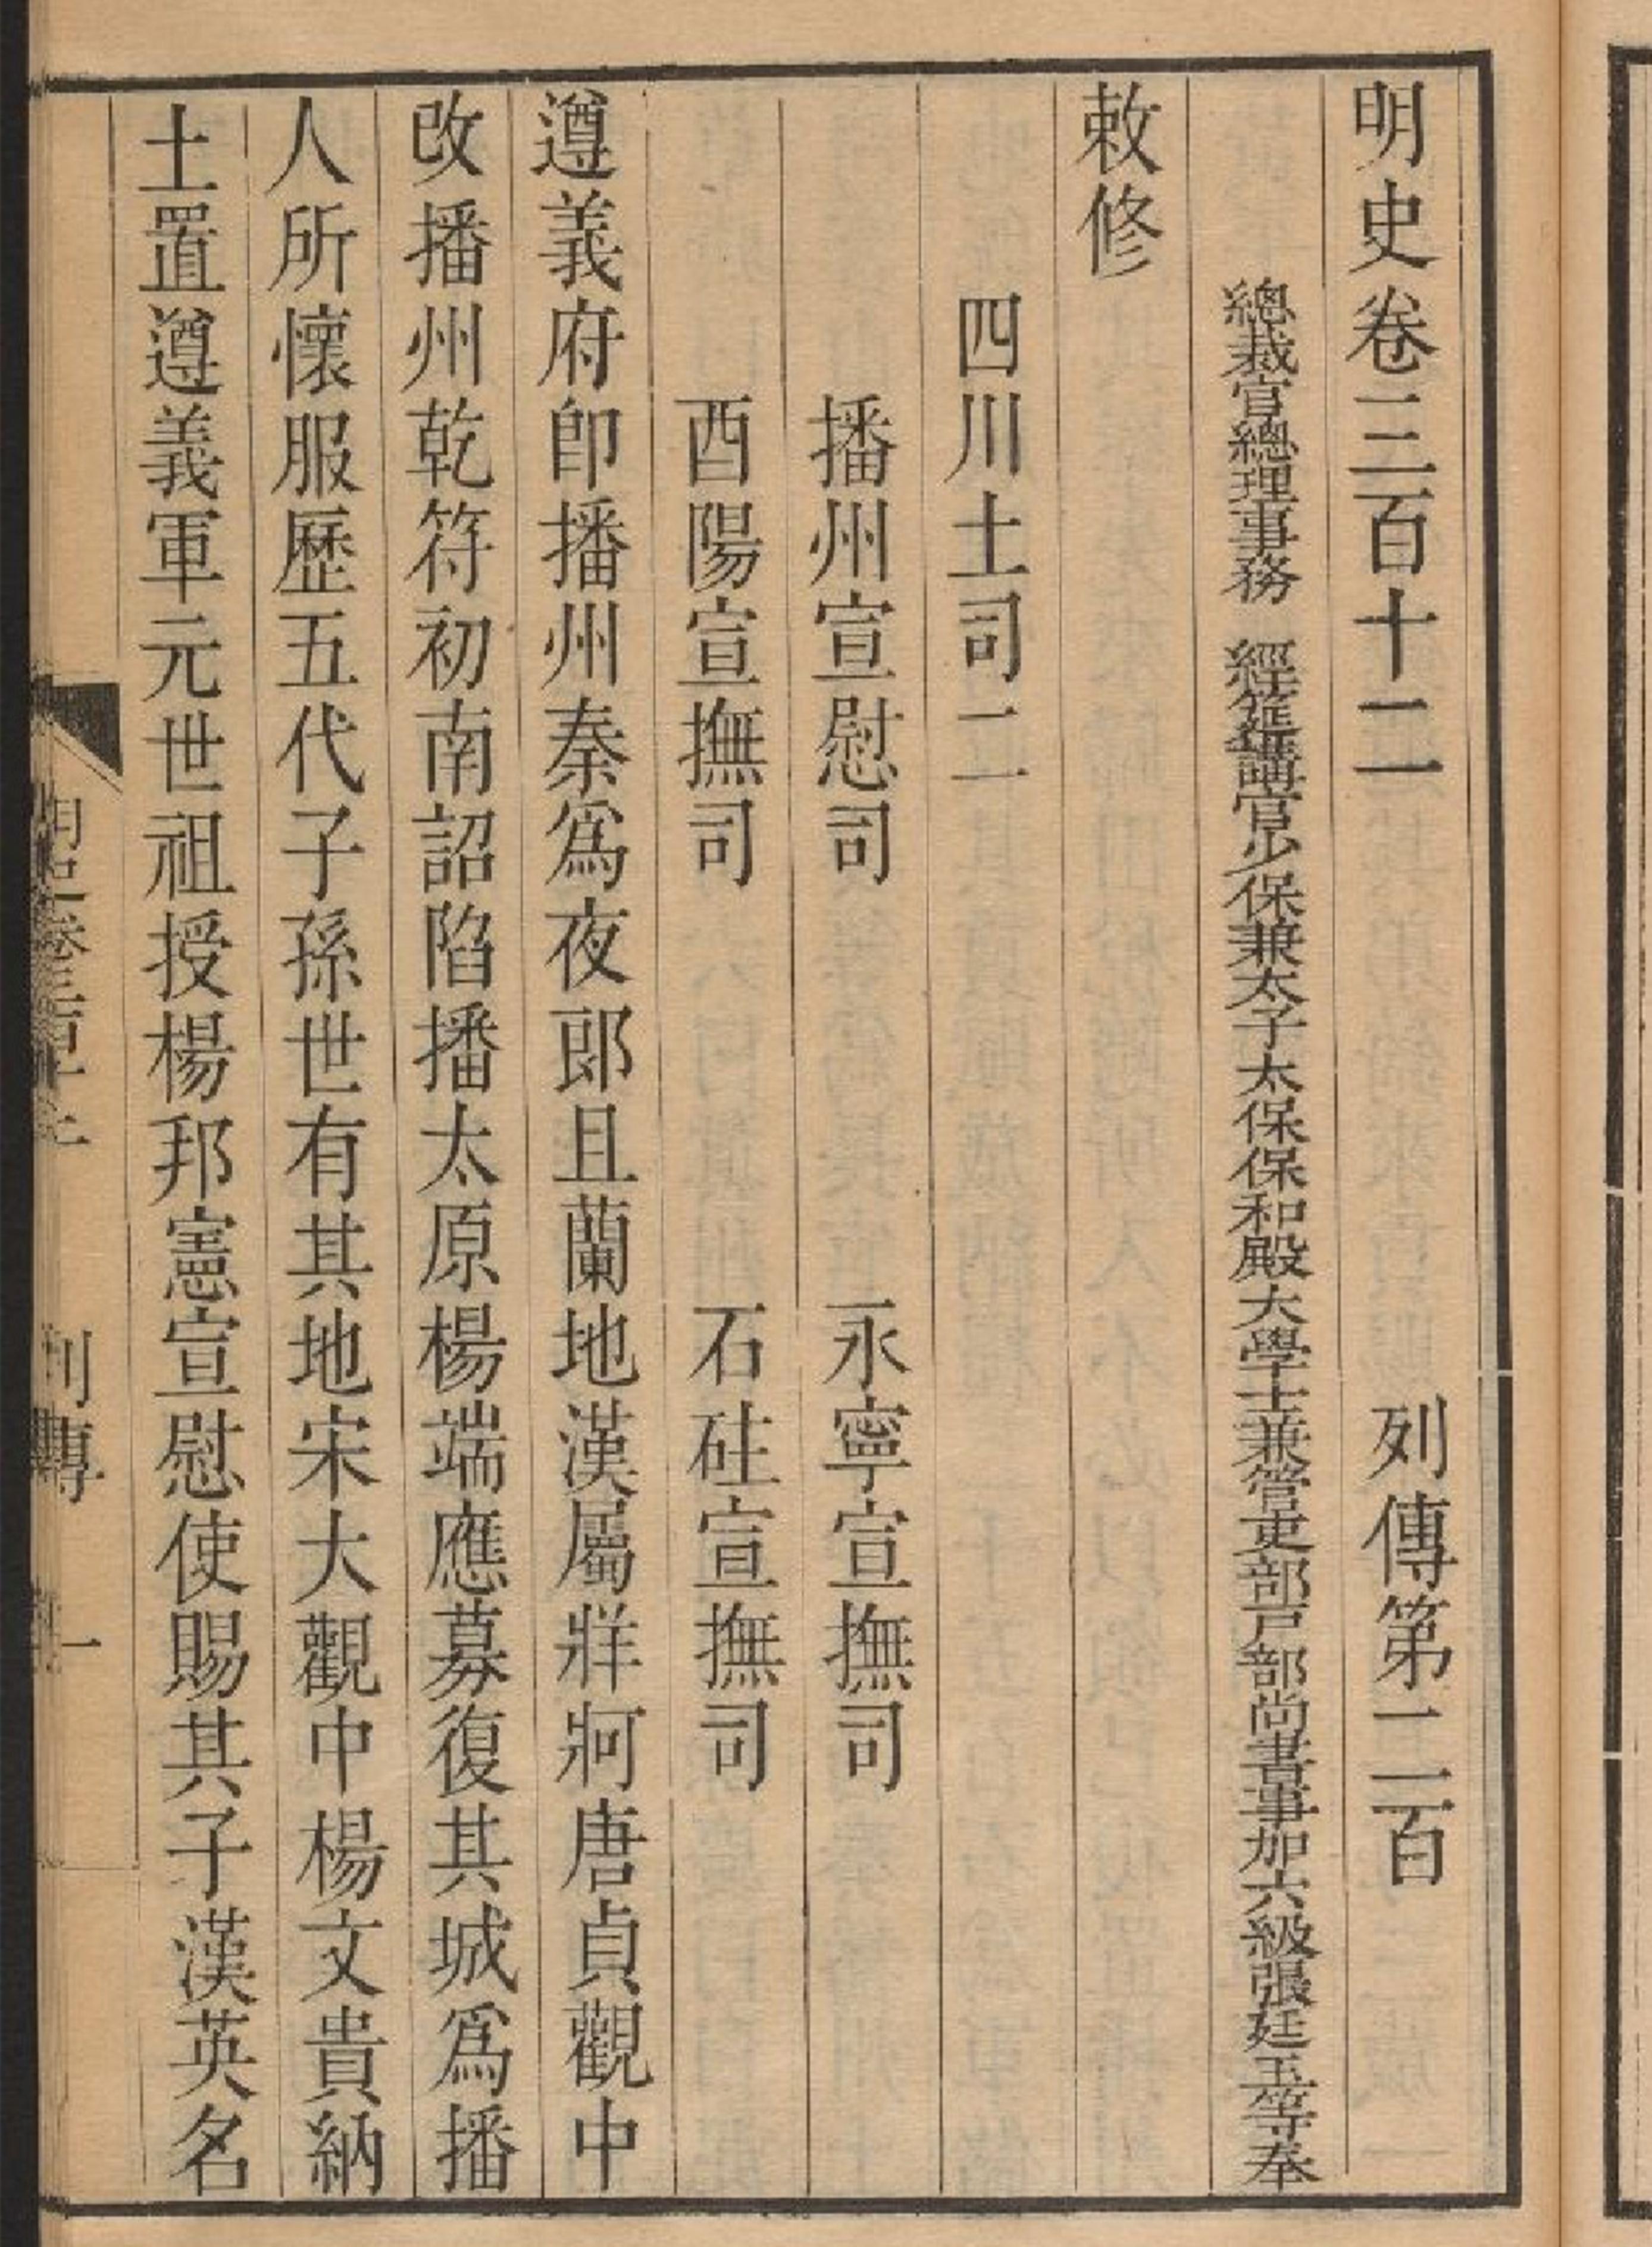 明史卷三百十二　列傳第二百
總裁官總理事務　經筵講官少保兼太子太保保和殿大學士兼管吏部戸部尚書事加六級張廷玉等奉
敕修
四川土司二
播州宣慰司　永寧宣撫司
酉陽宣撫司　石砫宣撫司
遵義府卽播州秦爲夜郞且蘭地漢屬牂牁唐貞觀中
改播州乾符初南詔陷播太原楊端應募復其城爲播
人所懷服歷五代子孫世有其地宋大觀中楊文貴納
土置遵義軍元世祖授楊邦憲宣慰使賜其子漢英名
明史卷三百十二　列傳　一